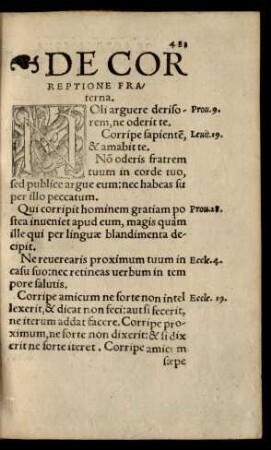 483
DE COR
REPTIONE FRA/
terna.
NOli arguere deriso/ Prou.9.
rem, ne oderit te.
Corripe sapientē, Leuit.19.
& amabit te.
Nō oderis fratrem
tuum in corde tuo,
sed publice argue eum: nec habeas su
per illo peccatum.
Qui corripit hominem gratiam po Prou.28.
stea inueniet apud eum, magis quàm
ille qui per linguæ blandimenta de/
cipit.
Ne reuerearis proximum tuum in Eccle.4.
casu suo: nec retineas uerbum in tem
pore salutis.
Corripe amicum ne forte non intel Eccle. 19.
lexerit, & dicat non feci: aut si fecerit,
ne iterum addat facere. Corripe pro/
ximum, ne forte non dixerit: & si dix
erit ne forte iteret. Corripe amicum
sæpe